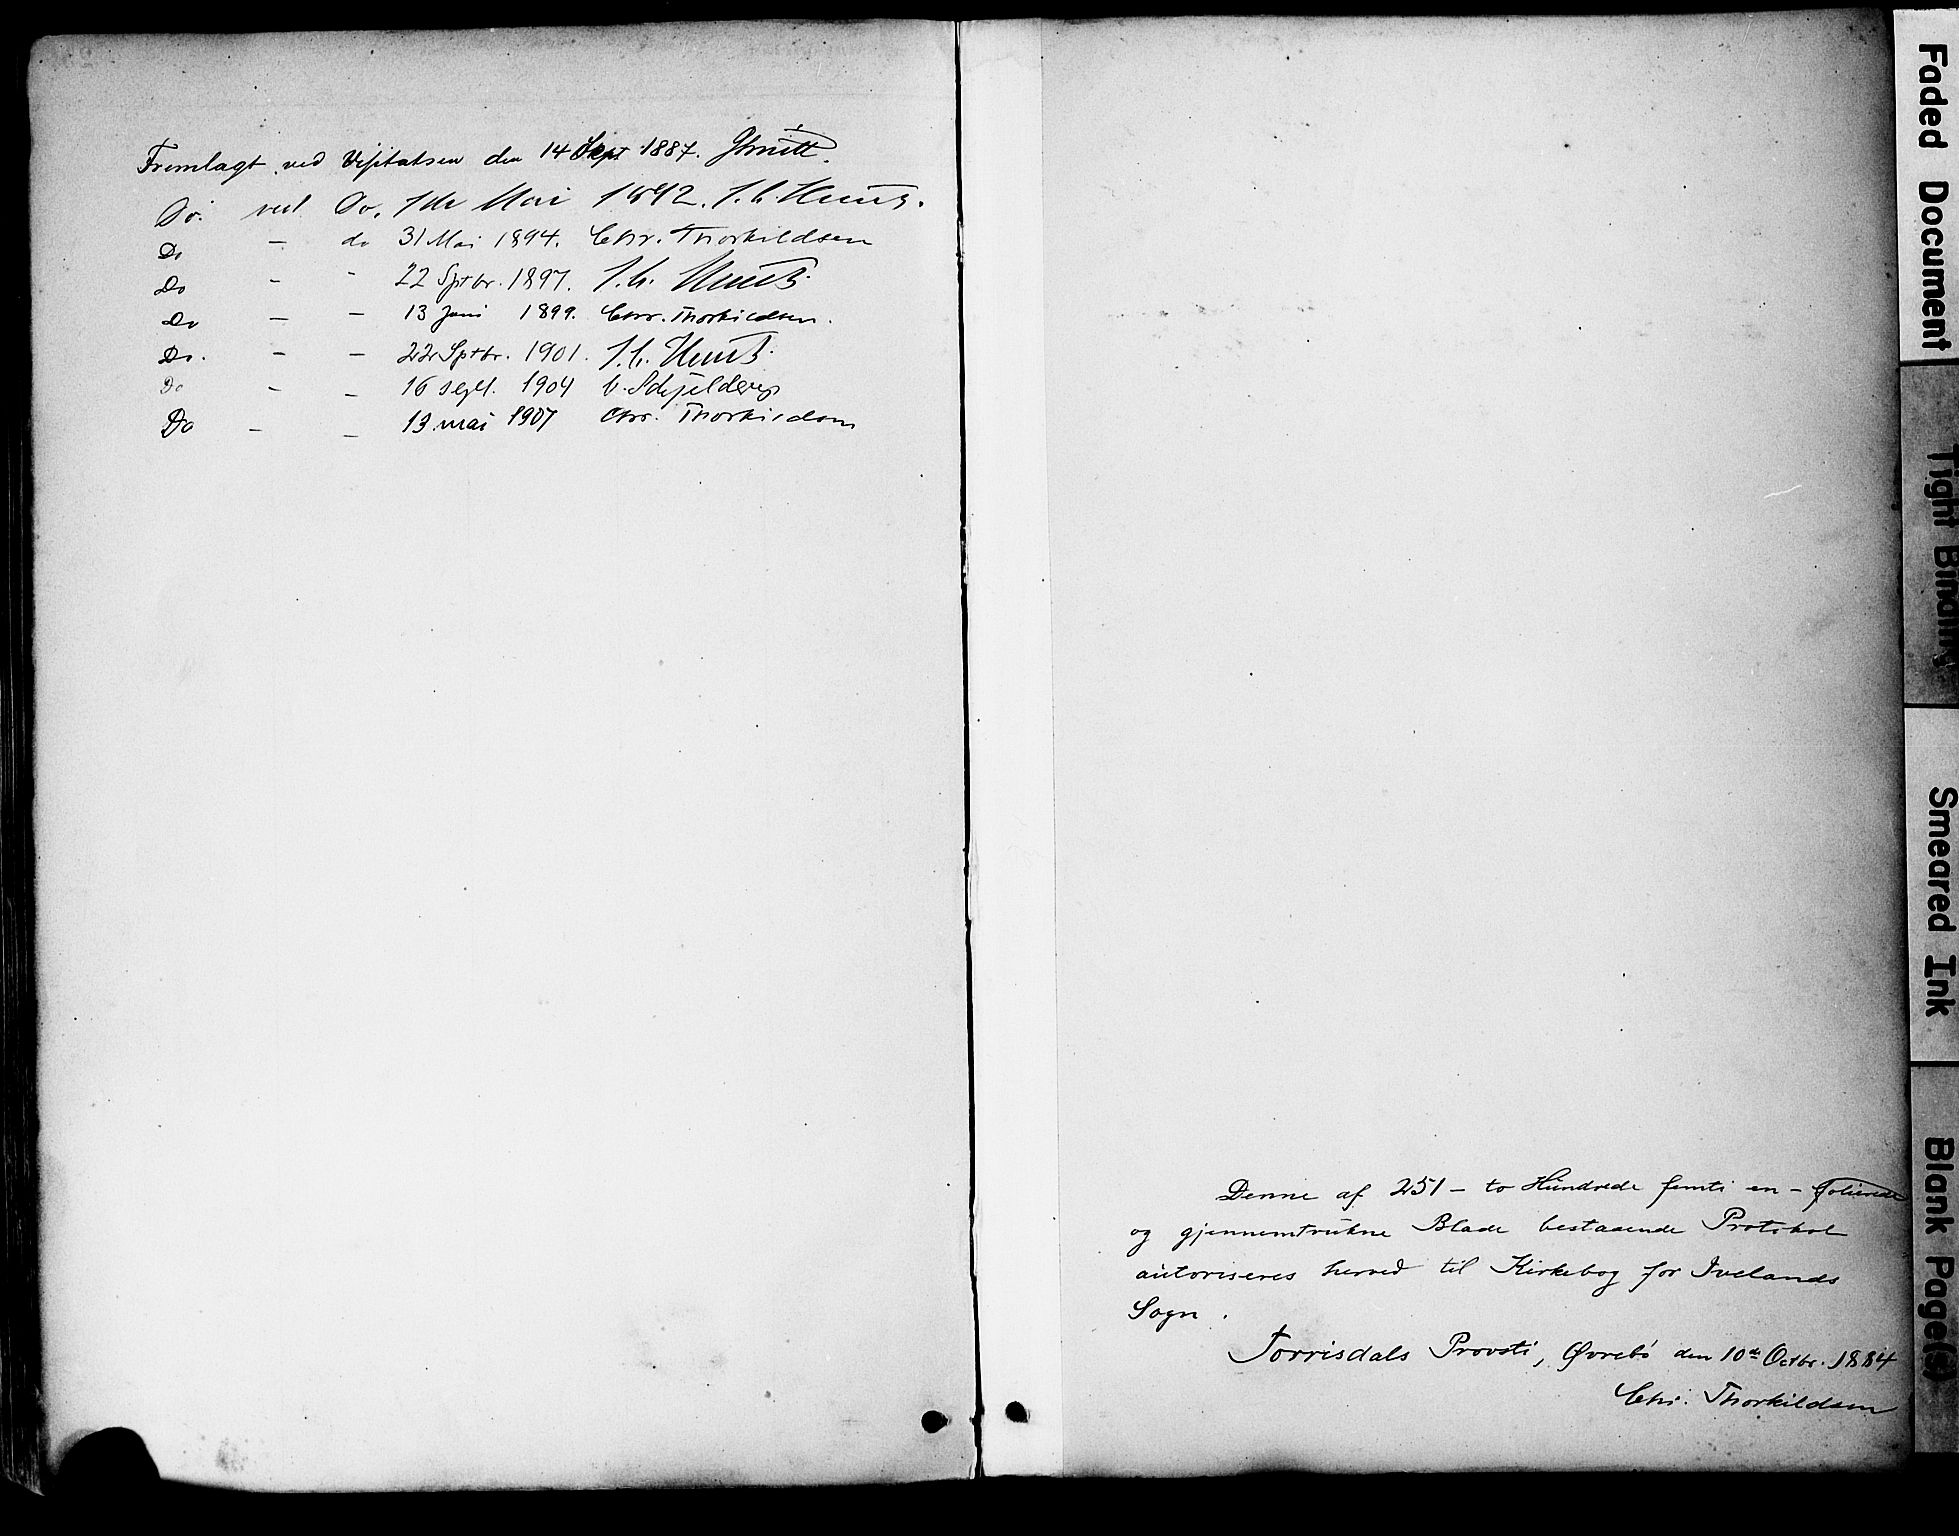 Fremlagt ved Visitatsen den 14 Sept 1887.
Do. ved Do. 1ste Mai 1892. J. C. Heuch.
Do — do 31 Mai 1894. Chr. Thorkildsen
Do - - 22 Sptbr. 1897. J. C. Heuch.
Do — — 13 Juni 1899. Chr. Thorkildsen.
Do. - — 22 Sptbr. 1901. J. C. Heuch.
Do - - 16 sept. 1904 Schjelderup
Do - - 13. mai 1907 Chr. Thorkildsen
Denne af 251 - to Hundrede femti en - Folierede
og gjennemtrukne Blade bestaaende Protokol
autoriseres herved til Kirkebog for Ivelands
Sogn.
Torrisdals Provsti, Øvrebö den 10de Octbr. 1884
Chr. Thorkildsen
Faded Document
Tight Binding
Smeared Ink
Blank Page(s)